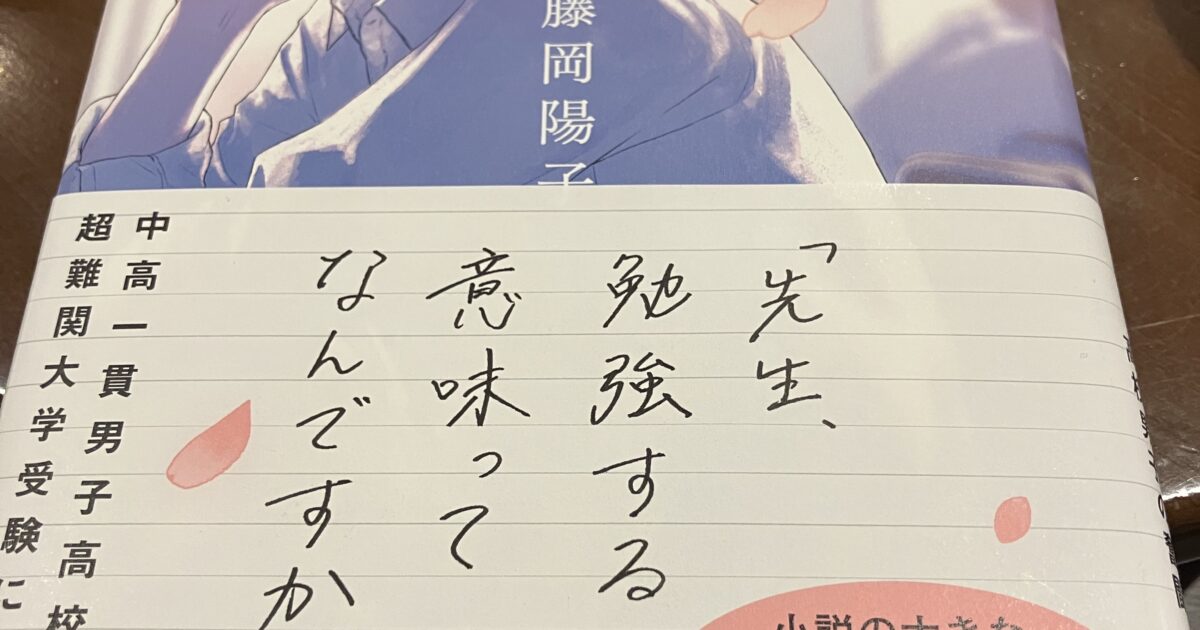 藤岡陽子
「先生、
勉強する
意味って
なんですか
中高一貫男子高校
超難関大学受験に
小説の大きな